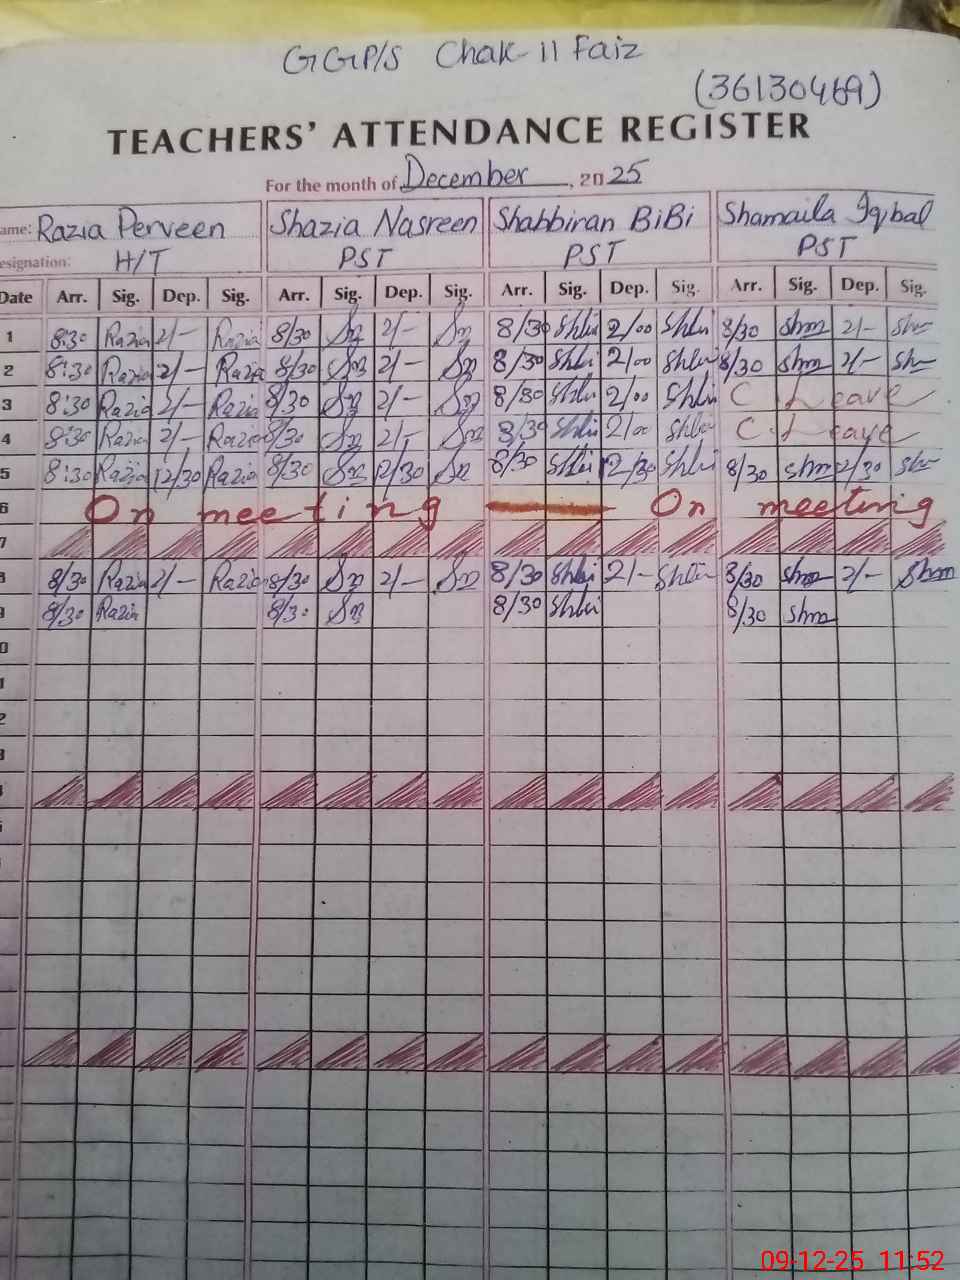 GGP/S Chak-11 Faiz
(36130469)
TEACHERS' ATTENDANCE REGISTER
For the month of December, 2025
ame: Razia Perveen Shazia Nasreen Shabbiran BiBi Shamaila Iqbal
esignation: H/T PST PST PST
Date Arr. Sig. Dep. Sig. Arr. Sig. Dep. Sig. Arr. Sig. Dep. Sig. Arr. Sig. Dep. Sig.
1 8:30 Razia 2/- Razia 8/30 Sn 2/- Sn 8/30 Shbi 2/00 Shbi 8/30 Shm 2/- Shm
2 8:30 Razia 2/- Razia 8/30 Sn 2/- Sn 8/30 Shbi 2/00 Shbi 8/30 Shm 2/- Shm
3 8:30 Razia 2/- Razia 8/30 Sn 2/- Sn 8/30 Shbi 2/00 Shbi C Leave
4 8:30 Razia 2/- Razia 8/30 Sn 2/- Sn 8/30 Shbi 2/00 Shbi C. Leave
5 8:30 Razia 12/30 Razia 8/30 Sn 12/30 Sn 8/30 Shbi 12/30 Shbi 8/30 Shm 12/30 Shm
6 On meeting On meeting
7
8 8/30 Razia 2/- Razia 8/30 Sn 2/- Sn 8/30 Shbi 2/- Shbi 8/30 Shm 2/- Shm
9 8/30 Razia 8/30 Sn 8/30 Shbi 8/30 Shm
0
1
2
3
09-12-25 11:52